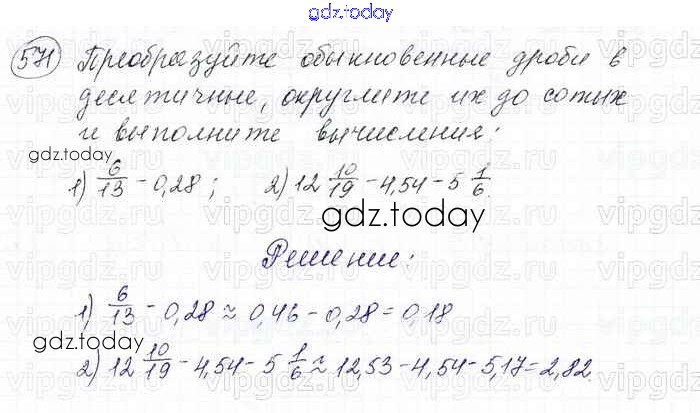 gdz.today
571 Преобразуйте обыкновенные дроби в
десятичные, округлите их до сотых
и выполните вычисления:
gdz.today
1) 6/13 - 0,28; 2) 12 10/19 - 4,54 - 5 1/6.
gdz.today
Решение:
1) 6/13 - 0,28 ≈ 0,46 - 0,28 = 0,18
gdz.today
2) 12 10/19 - 4,54 - 5 1/6 ≈ 12,53 - 4,54 - 5,17 = 2,82.